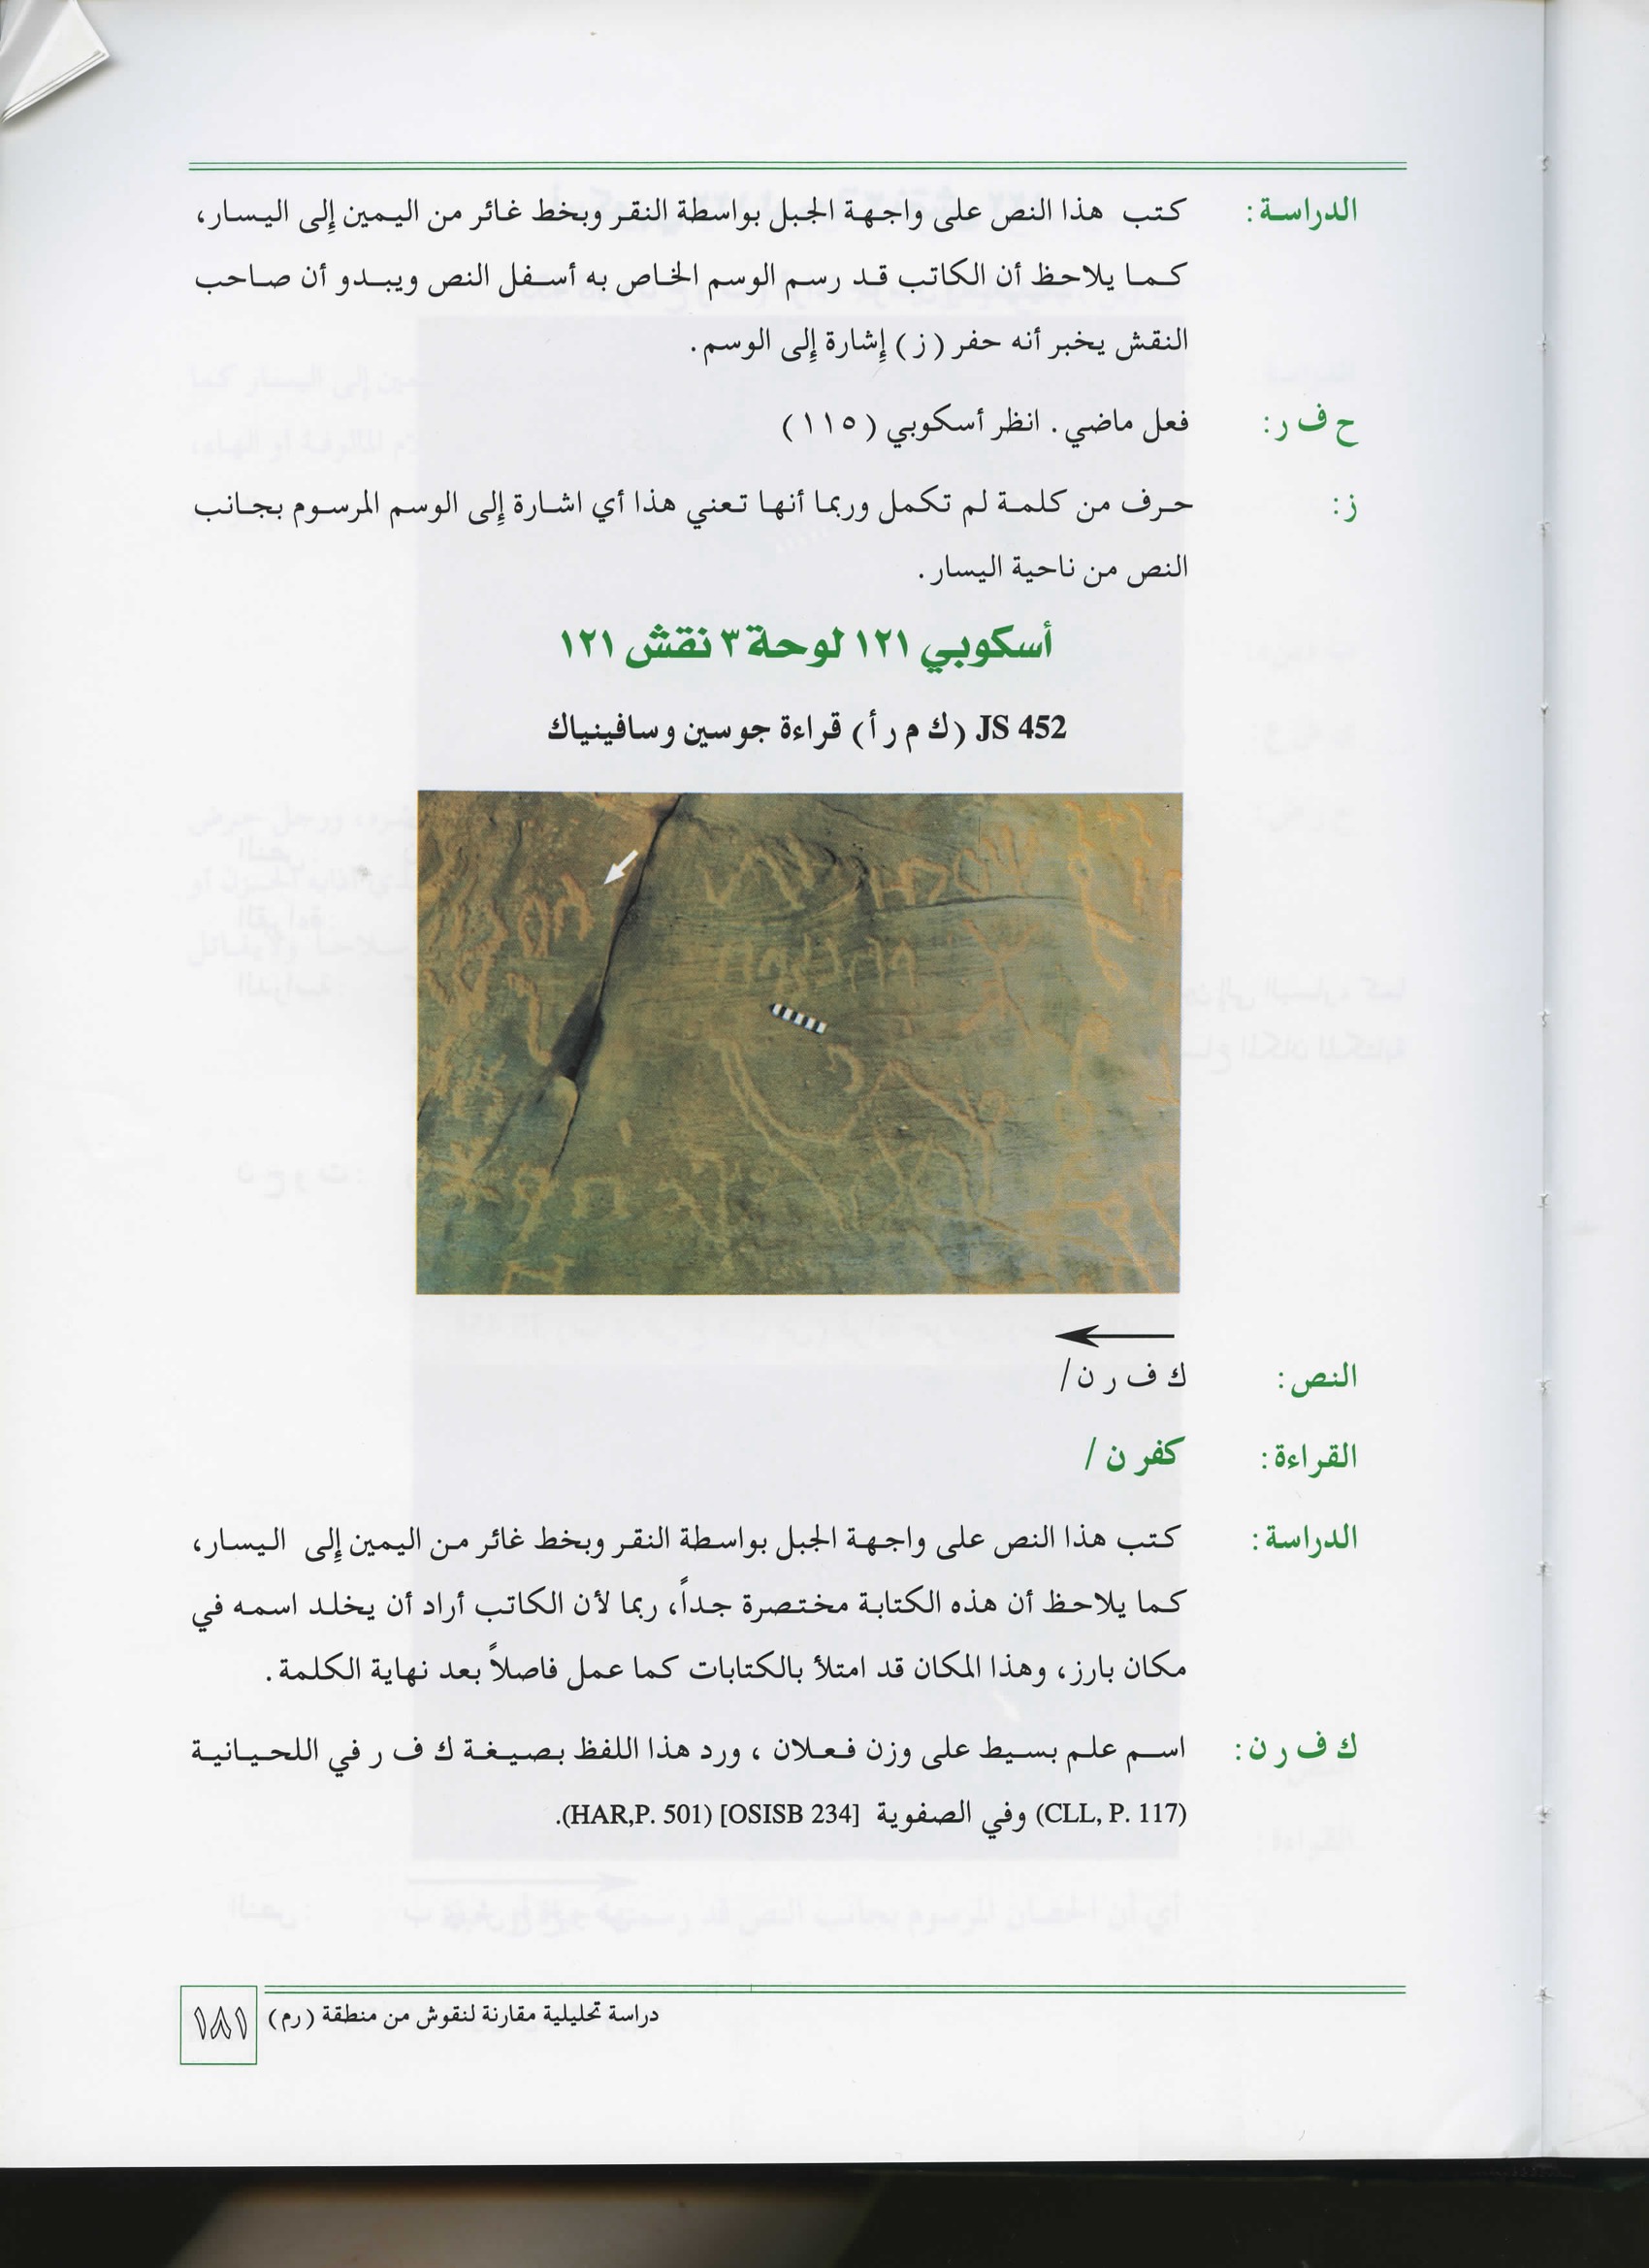 الدراسة: كتب هذا النص على واجهة الجبل بواسطة النقر وبخط غائر من اليمين إلى اليسار،
كما يلاحظ أن الكاتب قد رسم الوسم الخاص به أسفل النص ويبدو أن صاحب
النقش يخبر أنه حفر (ز) إشارة إلى الوسم.
ح ف ر: فعل ماضي. انظر أسكوبي (١١٥)
ز: حرف من كلمة لم تكمل وربما أنها تعني هذا أي اشارة إلى الوسم المرسوم بجانب
النص من ناحية اليسار.
أسكوبي ١٢١ لوحة ٣ نقش ١٢١
JS 452 (ك م ر أ) قراءة جوسين وسافينياك
النص: ك ف ر ن/
القراءة: كفر ن /
الدراسة: كتب هذا النص على واجهة الجبل بواسطة النقر وبخط غائر من اليمين إلى اليسار،
كما يلاحظ أن هذه الكتابة مختصرة جداً، ربما لأن الكاتب أراد أن يخلد اسمه في
مكان بارز، وهذا المكان قد امتلأ بالكتابات كما عمل فاصلاً بعد نهاية الكلمة.
ك ف ر ن: اسم علم بسيط على وزن فعلان ، ورد هذا اللفظ بصيغة ك ف ر في اللحيانية
(CLL, P. 117) وفي الصفوية [OSISB 234] (HAR,P. 501).
دراسة تحليلية مقارنة لنقوش من منطقة (رم)
١٨١